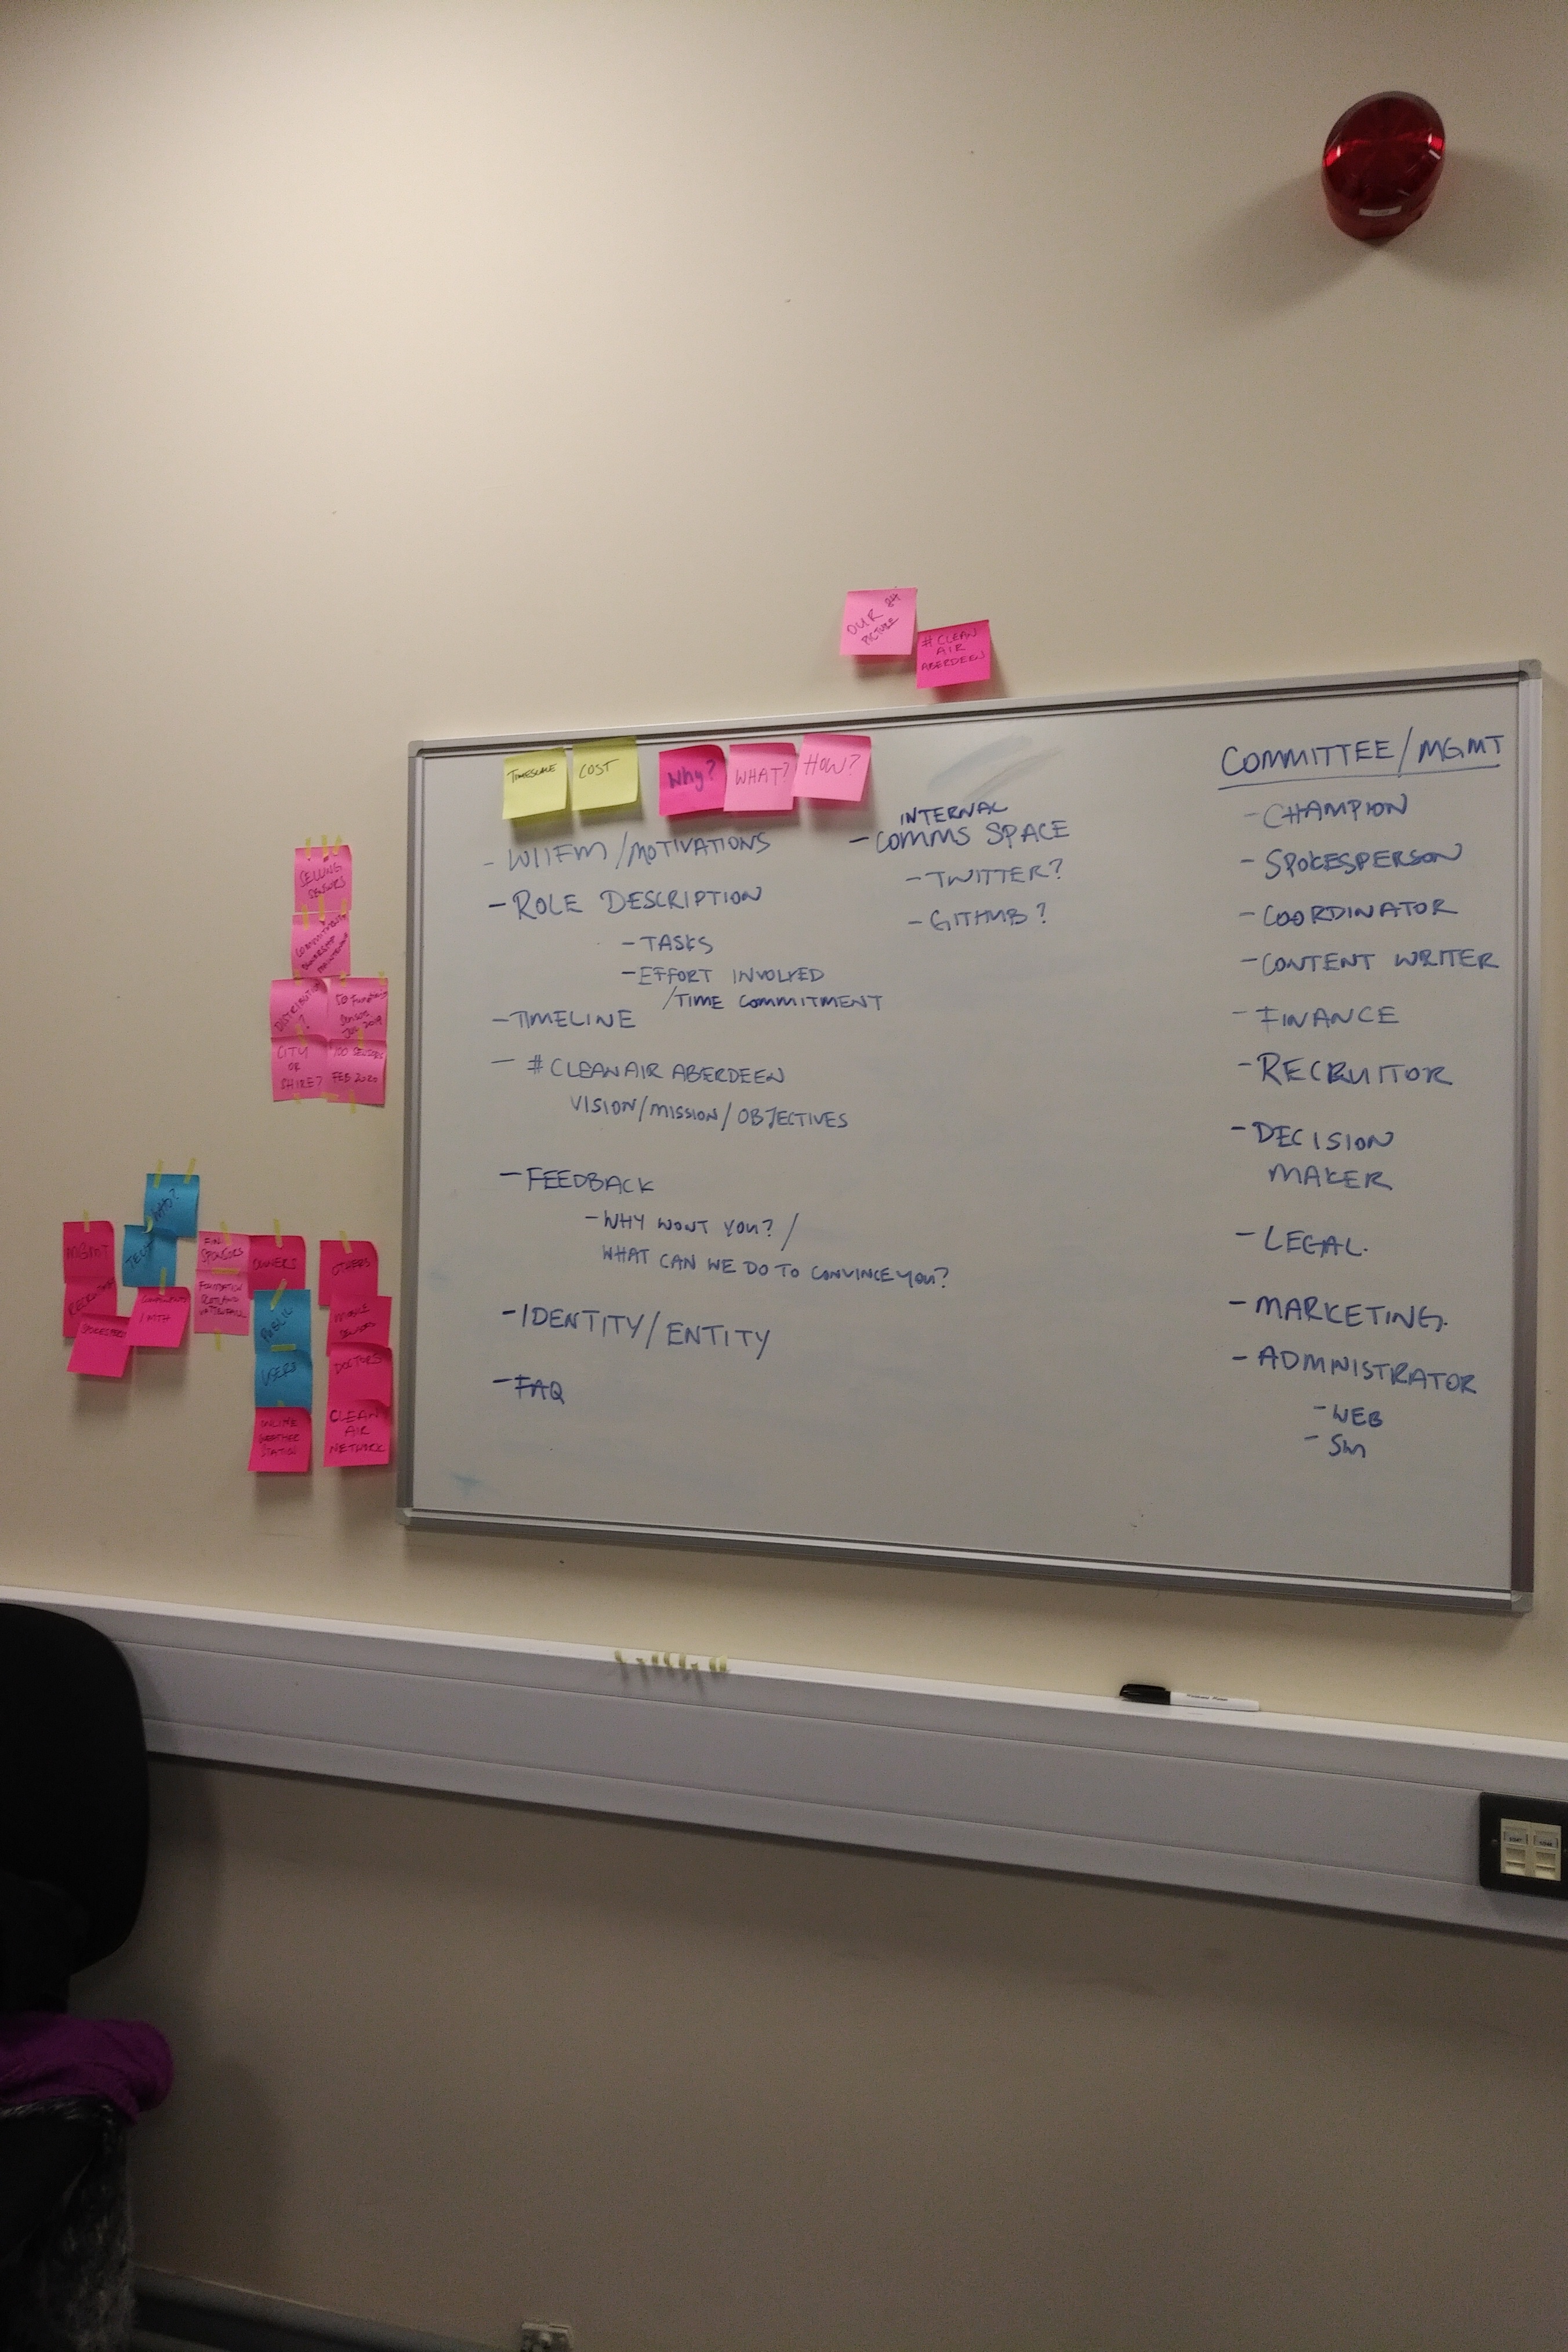 OUR
PICTURE
# CLEAN
AIR
ABERDEEN
TIMESCALE
COST
Why?
WHAT?
HOW?
- WIIFM / MOTIVATIONS
- ROLE DESCRIPTION
- TASKS
- EFFORT INVOLVED
/ TIME COMMITMENT
- TIMELINE
- # CLEAN AIR ABERDEEN
VISION / MISSION / OBJECTIVES
- FEEDBACK
- WHY WONT YOU? /
WHAT CAN WE DO TO CONVINCE YOU?
- IDENTITY / ENTITY
- FAQ
INTERNAL
- COMMS SPACE
- TWITTER?
- GITHUB?
COMMITTEE / MGMT
- CHAMPION
- SPOKESPERSON
- COORDINATOR
- CONTENT WRITER
- FINANCE
- RECRUITOR
- DECISION
MAKER
- LEGAL.
- MARKETING.
- ADMINISTRATOR
- WEB
- SM
SELLING
SENSORS
DISTRIBUTION
?
CITY
OR
SHIRE?
100 SENSORS
FEB 2020
WHO?
MGMT
TECH
FIN
SPONSORS
OWNERS
OTHERS
PUBLIC
USERS
ONLINE
WEATHER
STATION
MOBILE
SENSORS
DOCTORS
CLEAN
AIR
NETWORK